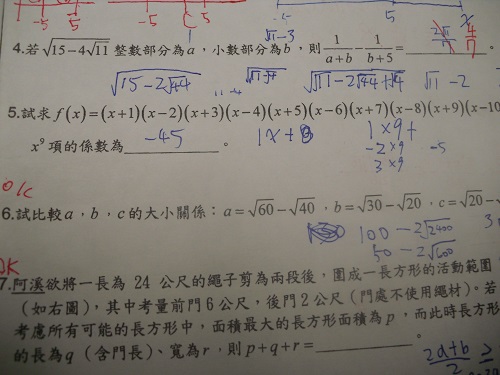 -5 5 -5 C 5 5 x
4.若√(15-4√11) 整數部分為a，小數部分為b，則 1/(a+b) - 1/(b+5) = 4/7
1 √11-3
√(15-2√44) √11-√4 √(11-2√44+√4) √11-2
5.試求f(x)=(x+1)(x-2)(x+3)(x-4)(x+5)(x-6)(x+7)(x-8)(x+9)(x-10
x⁹項的係數為 -45 。 1x+ 1×9+
-2×9 -5
3×9
OK
6.試比較a﹑b﹑c的大小關係：a=√60-√40，b=√30-√20，c=√20-
100-2√2400 3
50-2√600
OK
7.阿溪欲將一長為 24 公尺的繩子剪為兩段後，圍成一長方形的活動範圍
（如右圖），其中考量前門6公尺，後門2公尺（門處不使用繩材）。若
考慮所有可能的長方形中，面積最大的長方形面積為p，而此時長方形
的長為q（含門長）、寬為r，則p+q+r= 。
(2a+b)/2 ≥